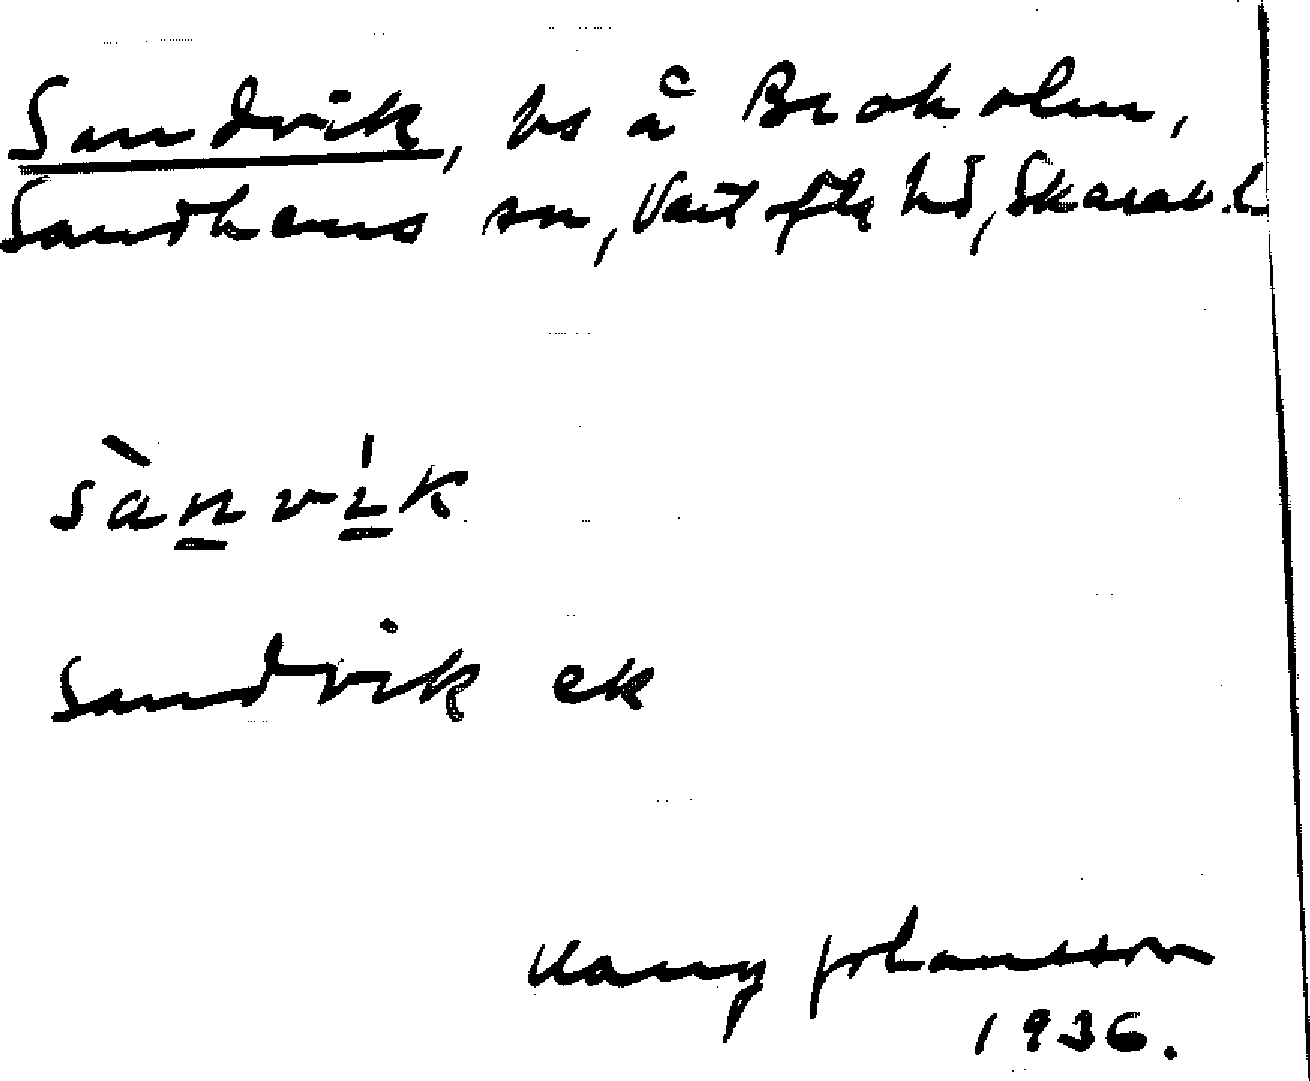 Sandvik, hs å Broholm,
Sandhems sn, Vartofta hd, Skarab. l.
sànvik
Sandvik ek
Johansson
1936.